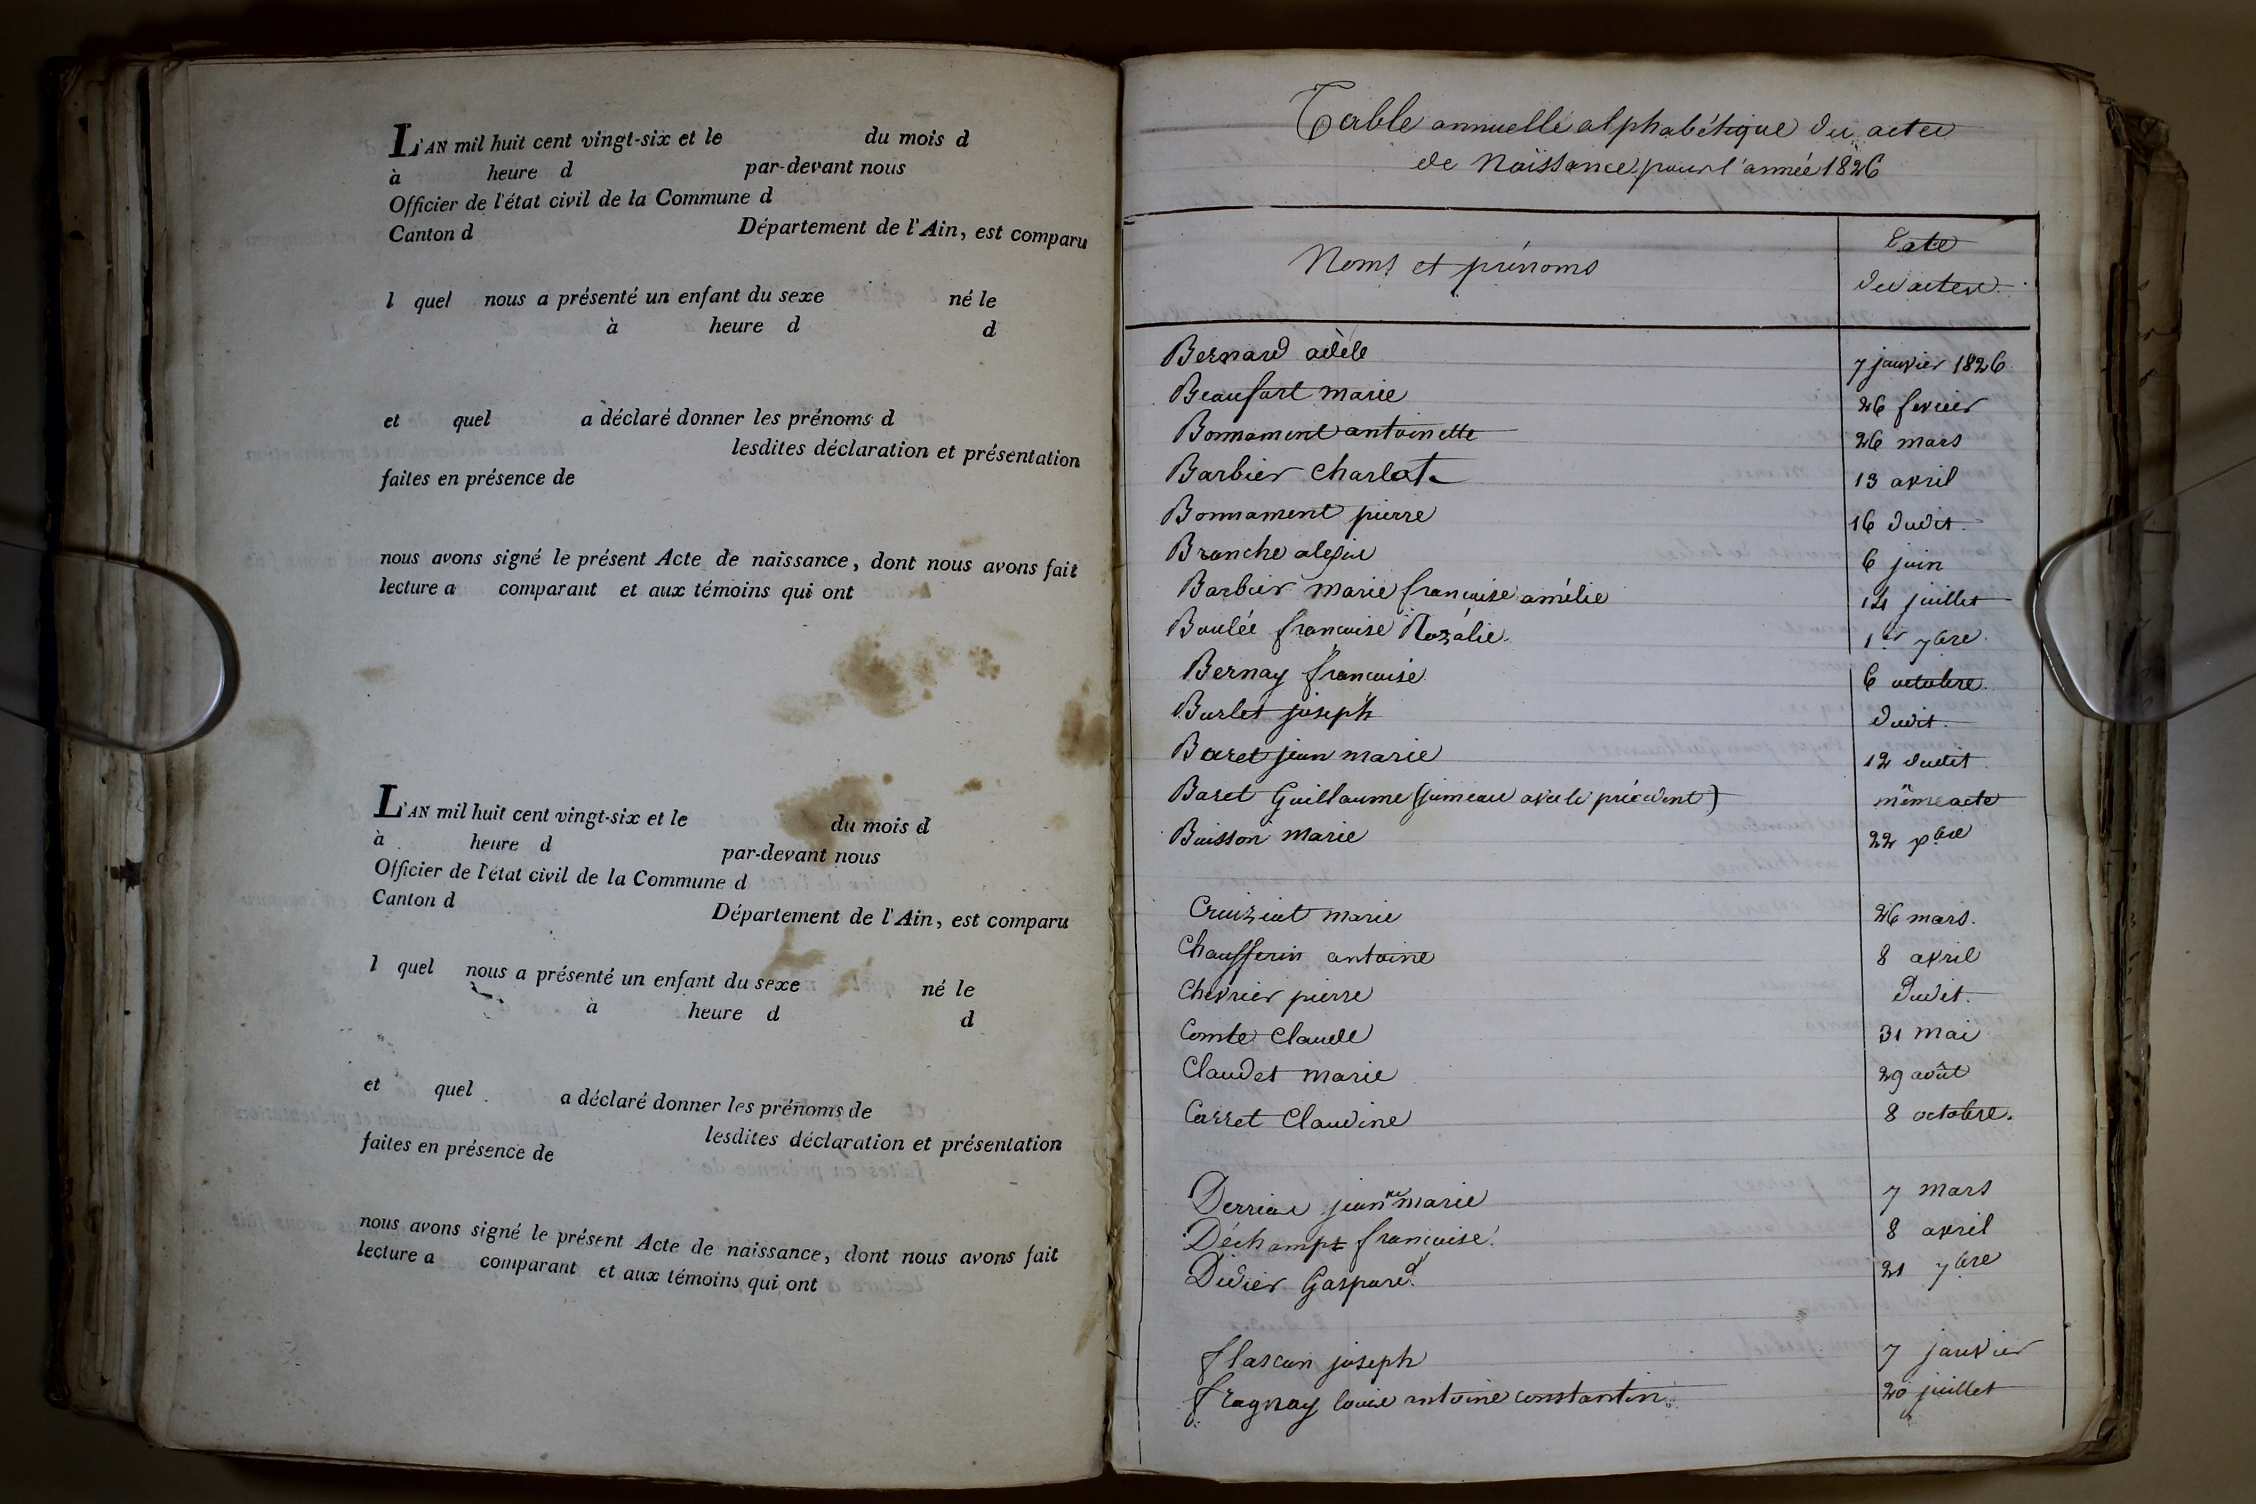 L'AN mil huit cent vingt-six et le du mois d
à heure d par-devant nous
Officier de l'état civil de la Commune d
Canton d Département de l'Ain, est comparu
l quel nous a présenté un enfant du sexe né le
à heure d d
et quel a déclaré donner les prénoms d
lesdites déclaration et présentation
faites en présence de
nous avons signé le présent Acte de naissance, dont nous avons fait
lecture a comparant et aux témoins qui ont
L'AN mil huit cent vingt-six et le du mois d
à heure d par-devant nous
Officier de l'état civil de la Commune d
Canton d Département de l'Ain, est comparu
l quel nous a présenté un enfant du sexe né le
à heure d d
et quel a déclaré donner les prénoms de
lesdites déclaration et présentation
faites en présence de
nous avons signé le présent Acte de naissance, dont nous avons fait
lecture a comparant et aux témoins qui ont
Table annuelle alphabétique des actes
de Naissance pour l'année 1826
Noms et prénoms Date
des actes
Bernard adèle 7 janvier 1826
Beaufort marie 26 fevrier
Bonnament antoinette 26 mars
Barbier Charlote 13 avril
Bonnament pierre 16 dudit
Branche alexis 6 juin
Barbier marie francoise amélie 14 juillet
Boulée francoise Rozalie 1er 7bre
Bernay francoise 6 octobre
Burlet joseph dudit
Baret jean marie 12 dudit
Baret Guillaume (jumeau avec le précédent) même acte
Buisson marie 22 xbre
Cruiziat marie 26 mars
Chaufferin antoine 8 avril
Chevrier pierre Dudit
Comte Claude 31 mai
Claudet marie 29 août
Carret Claudine 8 octobre
jeanne marie 7 mars
Déchamps francoise 8 avril
Didier Gaspard 21 7bre
flascan joseph 7 janvier
fragnay louis antoine constantin 20 juillet